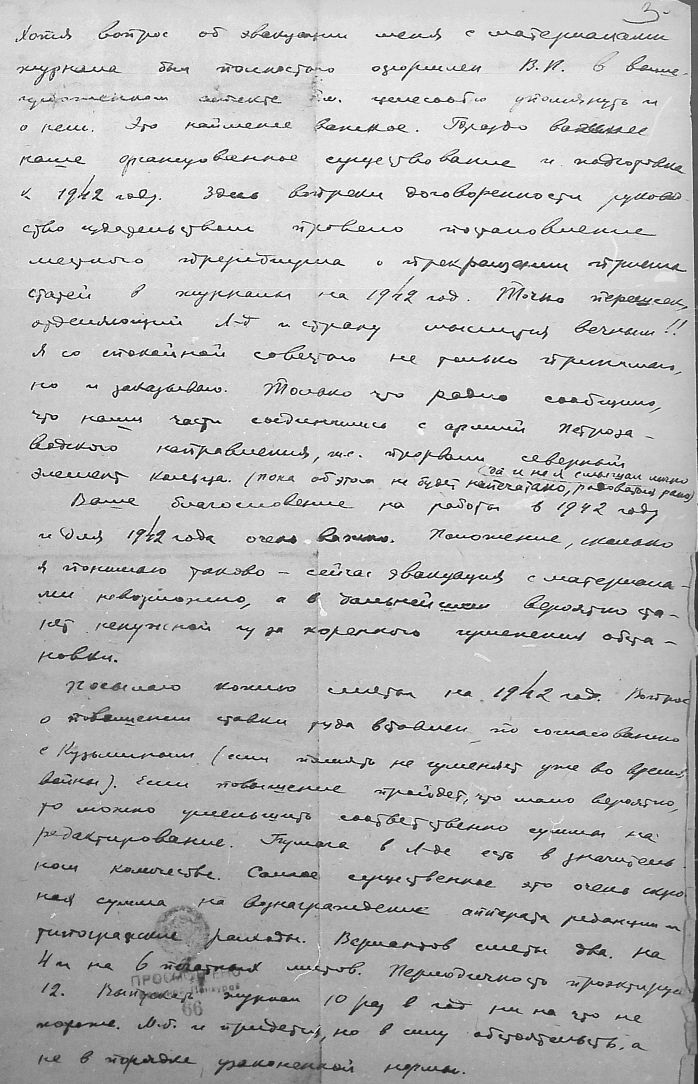 3.
Хотя вопрос об эвакуации меня с материалами
журнала был полностью оформлен В.И. в выше-
изложенном аспекте б.м. целесообр упомянуть и
о нем. Это наименее важное. Гораздо важнее
наше организованное существование и подготовка
к 1942 году. Здесь вопреки договоренности руковод-
ство издательством провело постановление
местного президиума о прекращении приема
статей в журналы на 1942 год. Точно перешеек,
отделяющий Л-д и страну мыслится вечным!!
Я со спокойной совестью не только принимаю,
но и заказываю. Только что радио сообщило,
что наши части соединились с армией Петроза-
водского направления, т.е. прорвали северный
элемент кольца. (пока об этом не будет напечатано, радоваться рано)
(да и не я слышал лично
Ваше благословение на работы в 1942 году
и для 1942 года очень важно. Положение, сколько
я понимаю таково – сейчас эвакуация с материала-
ми невозможна, а в дальнейшем вероятно ста-
нет ненужной из за коренного изменения обста-
новки.
Посылаю копию сметы на 1942 год. Вопрос
о повышении ставки туда вставлен по согласованию
с Кузьминым (если память не изменяет уже во время
войны). Если повышение пройдет, что мало вероятно,
то можно уменьшить соответственно суммы на
редактирование. Бумага в Л-де есть в значитель-
ном количестве. Самое существенное это очень скро-
ная сумма на вознаграждение аппарата редакции и
типографские расходы. Вариантов сметы два. на
4 и на 6 печатных листов. Периодичность проектирую
12. Выпускать журнал 10 раз в год ни на что не
похоже. М.б. и придется, но в силу обстоятельств, а
не в порядке узаконенной нормы.
ПРОСМОТРЕНО
66